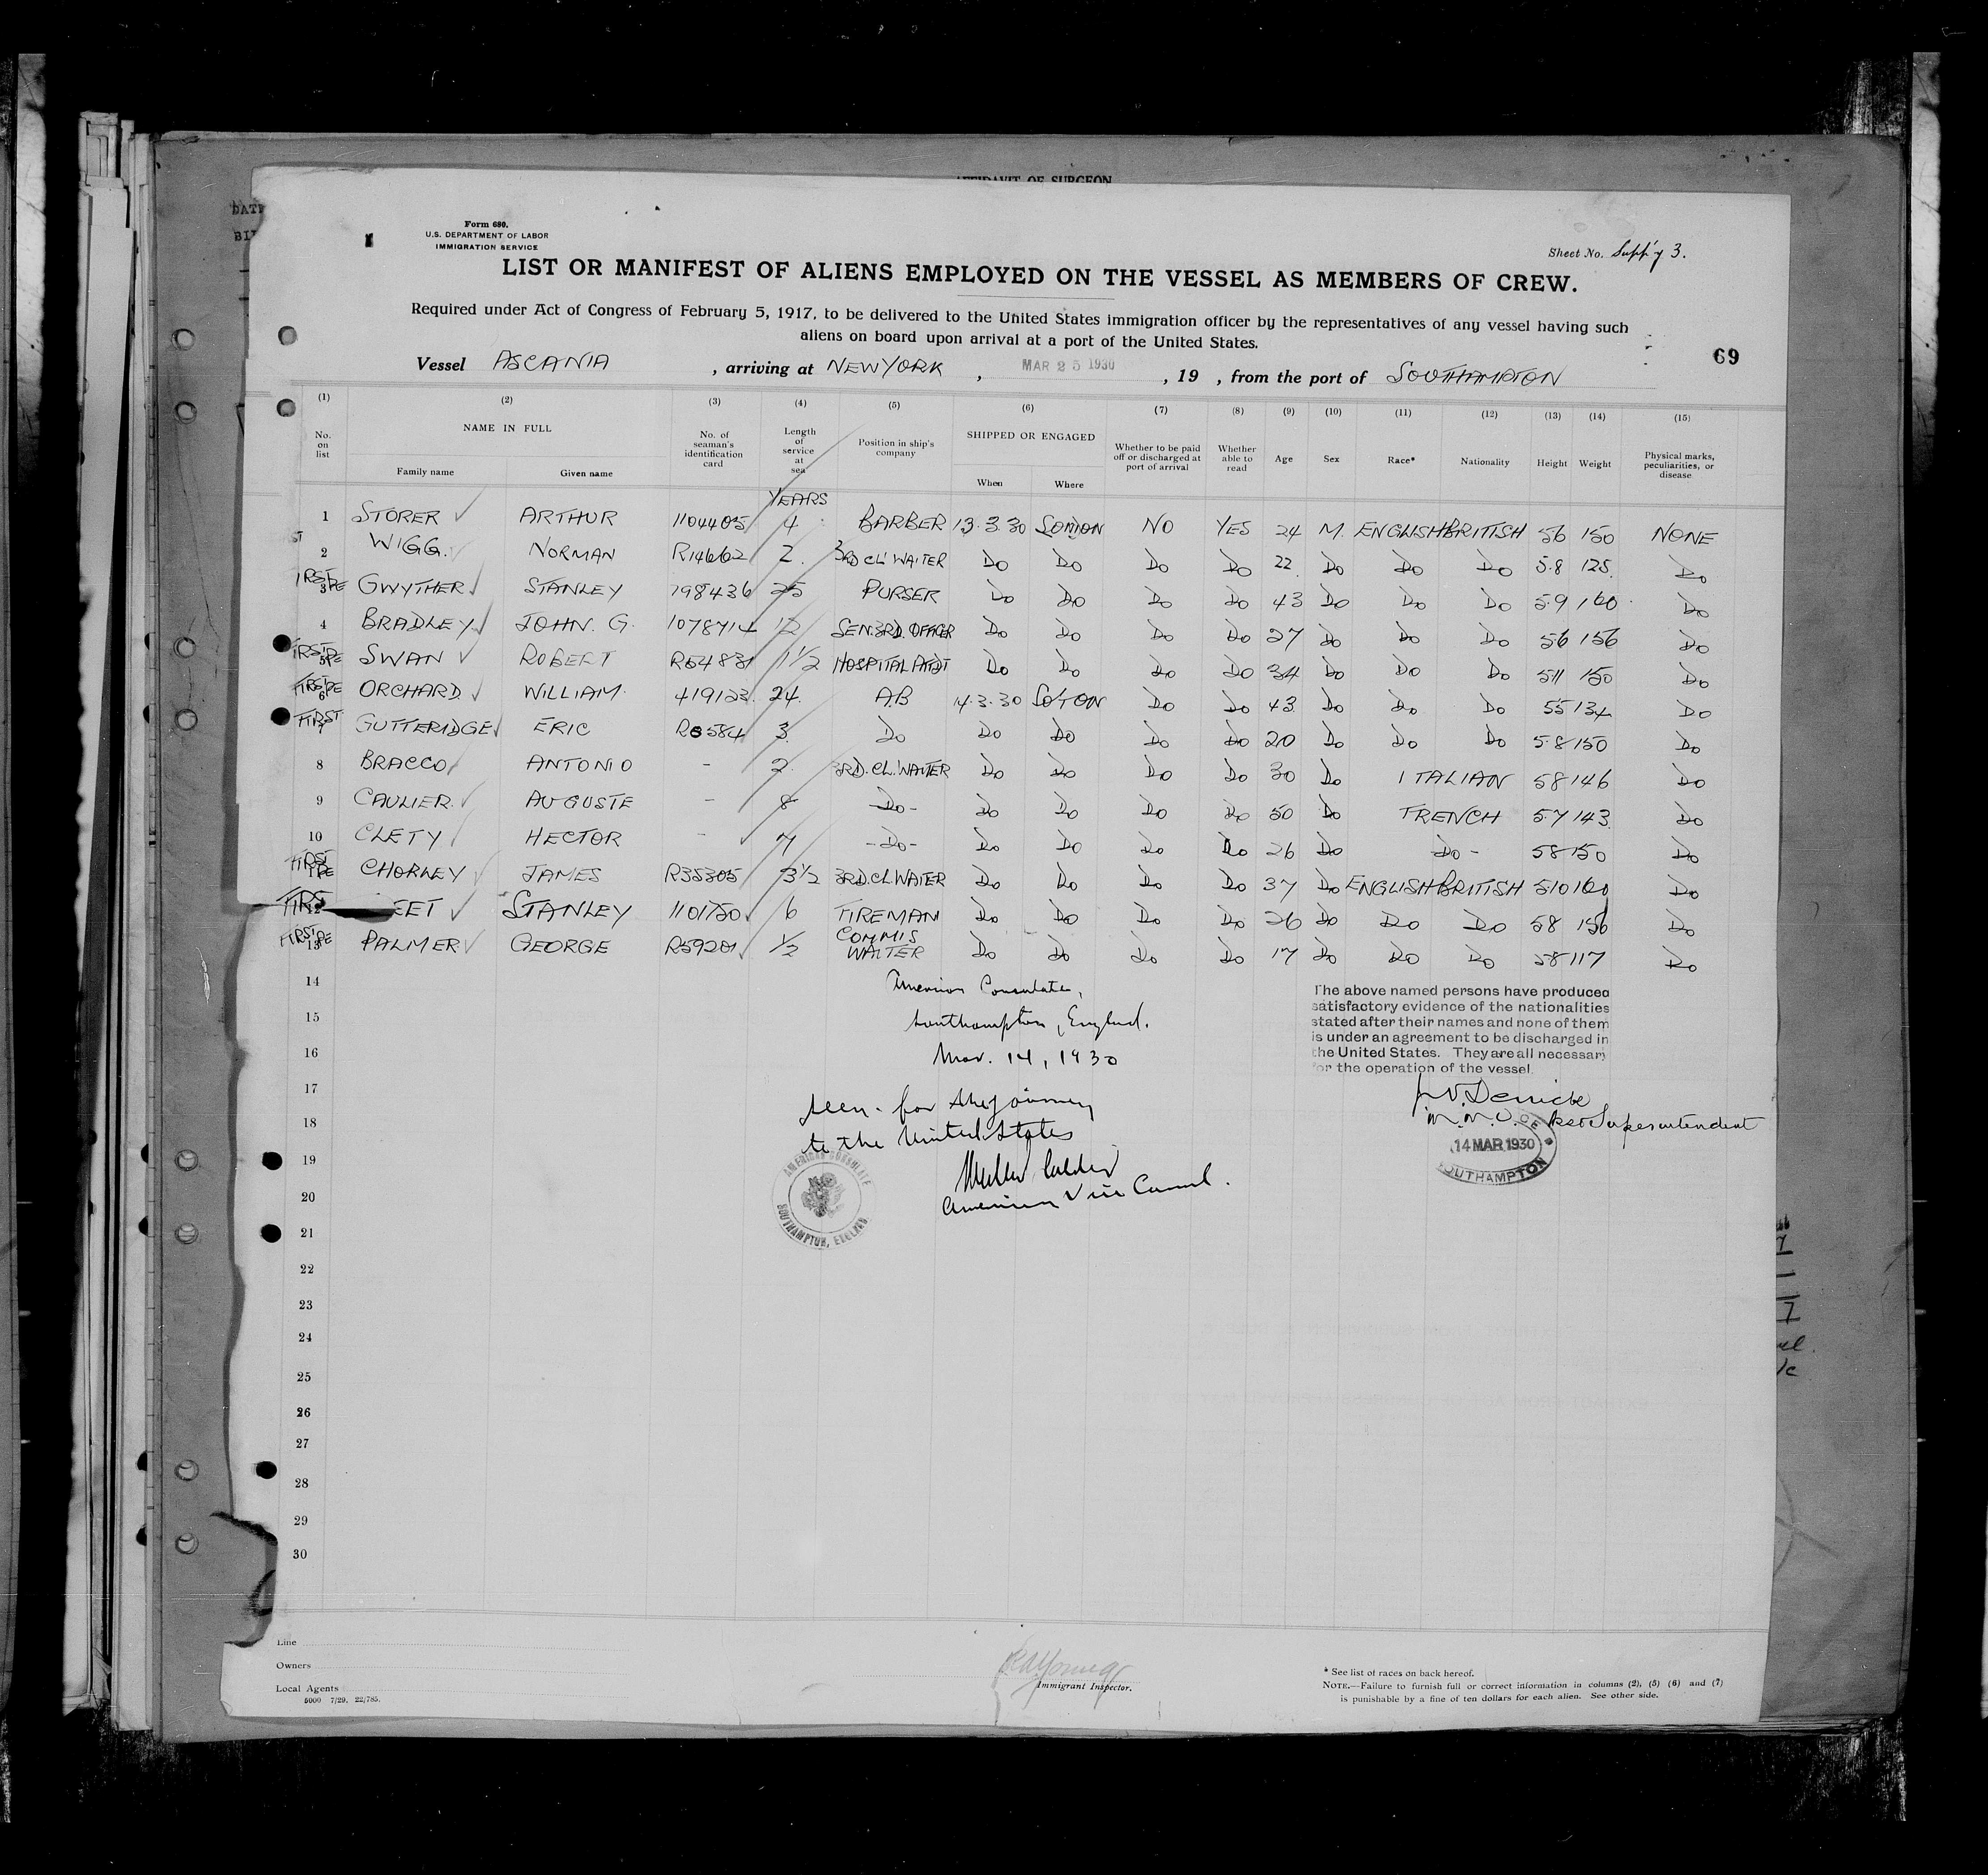 AFFIDAVIT OF SURGEON
Form 680.
U.S. DEPARTMENT OF LABOR
IMMIGRATION SERVICE
Sheet No. Supp'y 3.
LIST OR MANIFEST OF ALIENS EMPLOYED ON THE VESSEL AS MEMBERS OF CREW.
Required under Act of Congress of February 5, 1917, to be delivered to the United States immigration officer by the representatives of any vessel having such
aliens on board upon arrival at a port of the United States.
69
Vessel ASCANIA , arriving at NEW YORK , MAR 25 1930 , 19 , from the port of SOUTHAMPTON
(1) (2) (3) (4) (5) (6) (7) (8) (9) (10) (11) (12) (13) (14) (15)
No. on list NAME IN FULL Family name Given name No. of seaman's identification card Length of service at sea Position in ship's company SHIPPED OR ENGAGED When Where Whether to be paid off or discharged at port of arrival Whether able to read Age Sex Race* Nationality Height Weight Physical marks, peculiarities, or disease
YEARS
1 STORER ARTHUR 1104405 4 BARBER 13.3.30 SOTON NO YES 24 M. ENGLISH BRITISH 56 150 NONE
2 WIGG. NORMAN R14662 2. 3RD CL' WAITER Do Do Do Do 22 Do Do Do 5.8 125. Do
3 GWYTHER STANLEY 798436 25 PURSER Do Do Do Do 43 Do Do Do 5.9 160 Do
4 BRADLEY JOHN. G. 1078714 12 SEN. 3RD. OFFICER Do Do Do Do 27 Do Do Do 56 156 Do
5 SWAN ROBERT R54831 1 1/2 HOSPITAL ATDT Do Do Do Do 34 Do Do Do 511 150 Do
6 ORCHARD WILLIAM. 419123. 24. A.B 14.3.30 SO'TON Do Do 43 Do Do Do 55 134 Do
FIRST 7 GUTTERIDGE ERIC R6584 3. Do Do Do Do Do 20 Do Do Do 5.8 150 Do
8 BRACCO ANTONIO - 2. 3RD. CL. WAITER Do Do Do Do 30 Do ITALIAN 58 146 Do
9 CAULIER. AUGUSTE - 8 -Do- Do Do Do Do 50 Do FRENCH 5.7 143. Do
10 CLETY HECTOR - 7 -Do- Do Do Do Do 26 Do -Do- 58 150 Do
11 CHORLEY JAMES R35305 3 1/2 3RD. CL. WAITER Do Do Do Do 37 Do ENGLISH BRITISH 510 160 Do
12 EET STANLEY 1101750 6 FIREMAN Do Do Do Do 26 Do Do Do 58 156 Do
13 PALMER GEORGE R59201 1/2 COMMIS WAITER Do Do Do Do 17 Do Do Do 58 117 Do
14
American Consulate,
15
Southampton, England.
16
Mar. 14, 1930
The above named persons have produced
satisfactory evidence of the nationalities
stated after their names and none of them
is under an agreement to be discharged in
the United States. They are all necessary
for the operation of the vessel.
17
Seen for the journey
18
to the United States
Superintendent
14 MAR 1930
SOUTHAMPTON
19
American Vice Consul.
AMERICAN CONSULATE
SOUTHAMPTON, ENGLAND
20
21
22
23
24
25
26
27
28
29
30
Line
Owners
Local Agents
5000 7/29. 22/785.
Immigrant Inspector.
* See list of races on back hereof.
NOTE.—Failure to furnish full or correct information in columns (2), (5) (6) and (7)
is punishable by a fine of ten dollars for each alien. See other side.